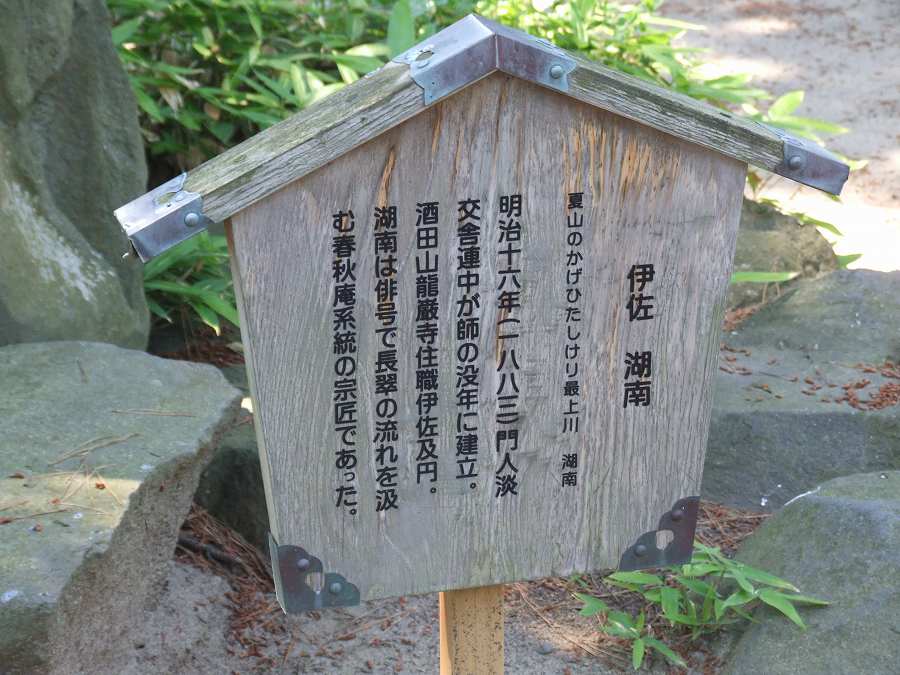 伊佐　湖南
夏山のかげひたしけり最上川　湖南
明治十六年(一八八三)門人淡
交舎連中が師の没年に建立。
酒田山龍厳寺住職伊佐及円。
湖南は俳号で長翠の流れを汲
む春秋庵系統の宗匠であった。